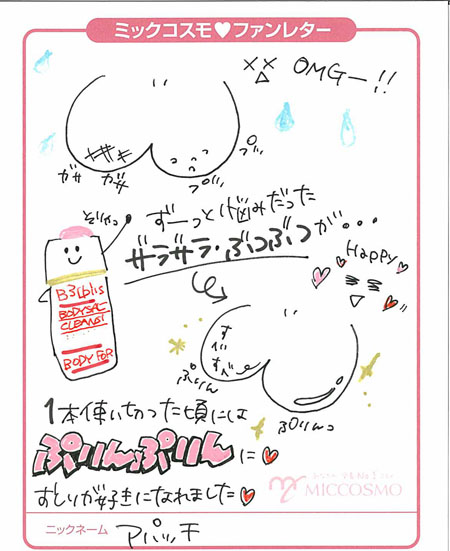 ミックコスモ♥ファンレター
×× OMGー!!
ガサ ガサ プツッ プツッ
ずーっと悩みだった
ザラザラ・ぶつぶつが・・・
Happy
BODY
CLEANS
BODY FOR
すべすべ
ぷりん
ぷりんっ
1本使いきった頃には
ぷりんぷりんに♥
おしりが好きになれました♥
MICCOSMO
ニックネーム アパッチ